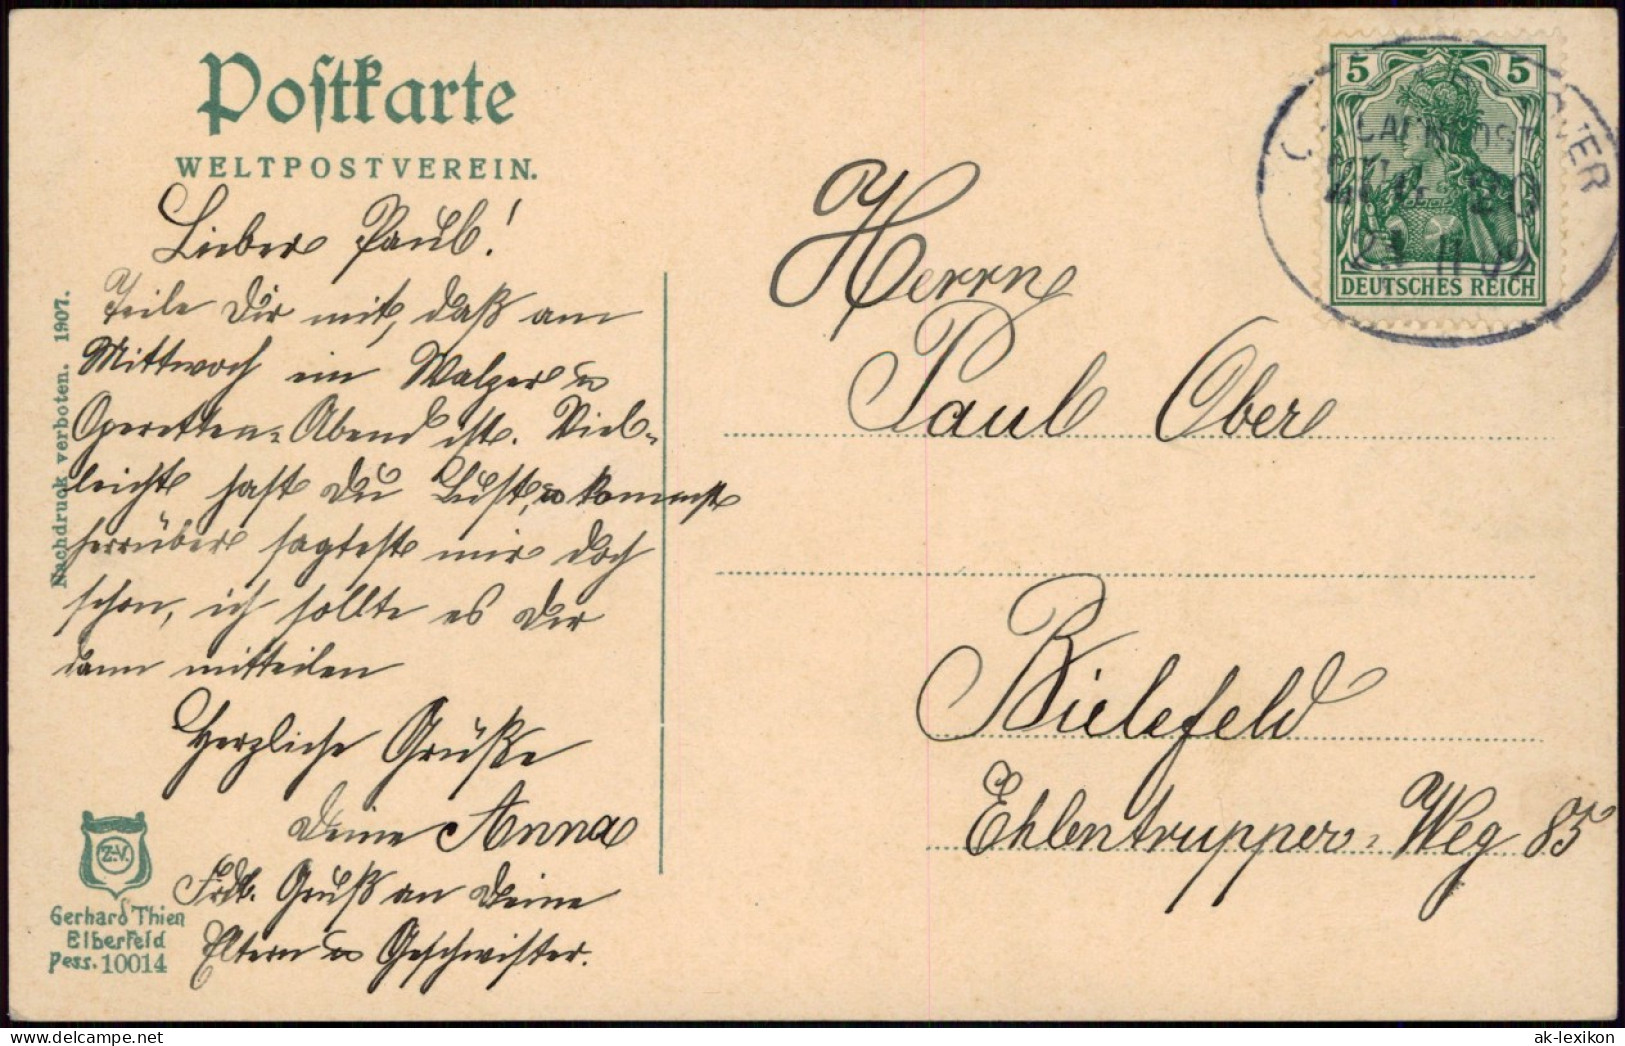 Postkarte
WELTPOSTVEREIN.
Lieber Paul!
Teile Dir mit, daß am
Mittwoch ein Walzer u
Operetten-Abend ist. Viel-
leicht hast Du Lust, u kommst
herrüber sagtest mir doch
schon, ich sollte es Dir
dann mitteilen
Herzliche Grüße
Deine Anna
Frdl. Gruß an Deine
Eltern u Geschwister.
Nachdruck verboten. 1907.
Z.V.
Gerhard Thien
Elberfeld
Dess. 10014
5 5
DEUTSCHES REICH
BAHNPOST
ZUG
Herrn
Paul Ober
Bielefeld
Ehlentrupper-Weg 85
ak-lexikon